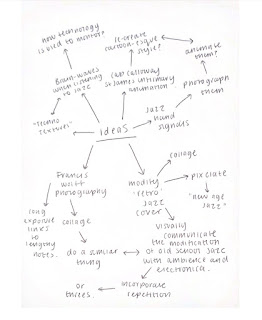 how technology
is used to monitor?
re-create
cartoon-esque
style?
animate
them?
Brain-waves
when listening
to jazz
cab calloway
st james infirmary
animation
photograph
them
"techno
textures"
ideas
jazz
hand
signals
collage
Francis
wolff
photography
modify
'retro'
jazz
cover
pixelate
"new age
jazz"
long
exposure
links
to
lengthy
notes.
collage
do a similar
thing
visually
communicate
the modification
of old school jazz
with ambience and
electronica.
or
threes.
incorporate
repetition